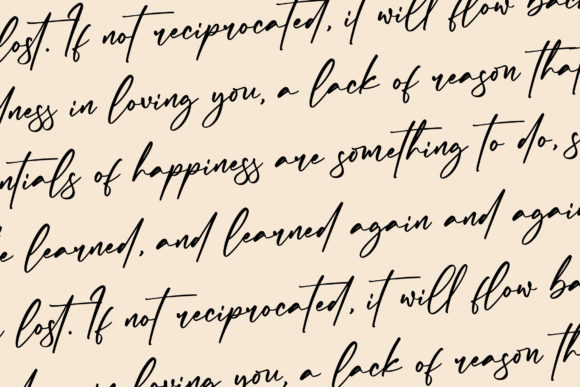 lost. If not reciprocated, it will flow bac
dness in loving you, a lack of reason that
ntials of happiness are something to do, s
e learned, and learned again and again
lost. If not reciprocated, it will flow ba
in loving you, a lack of reason th